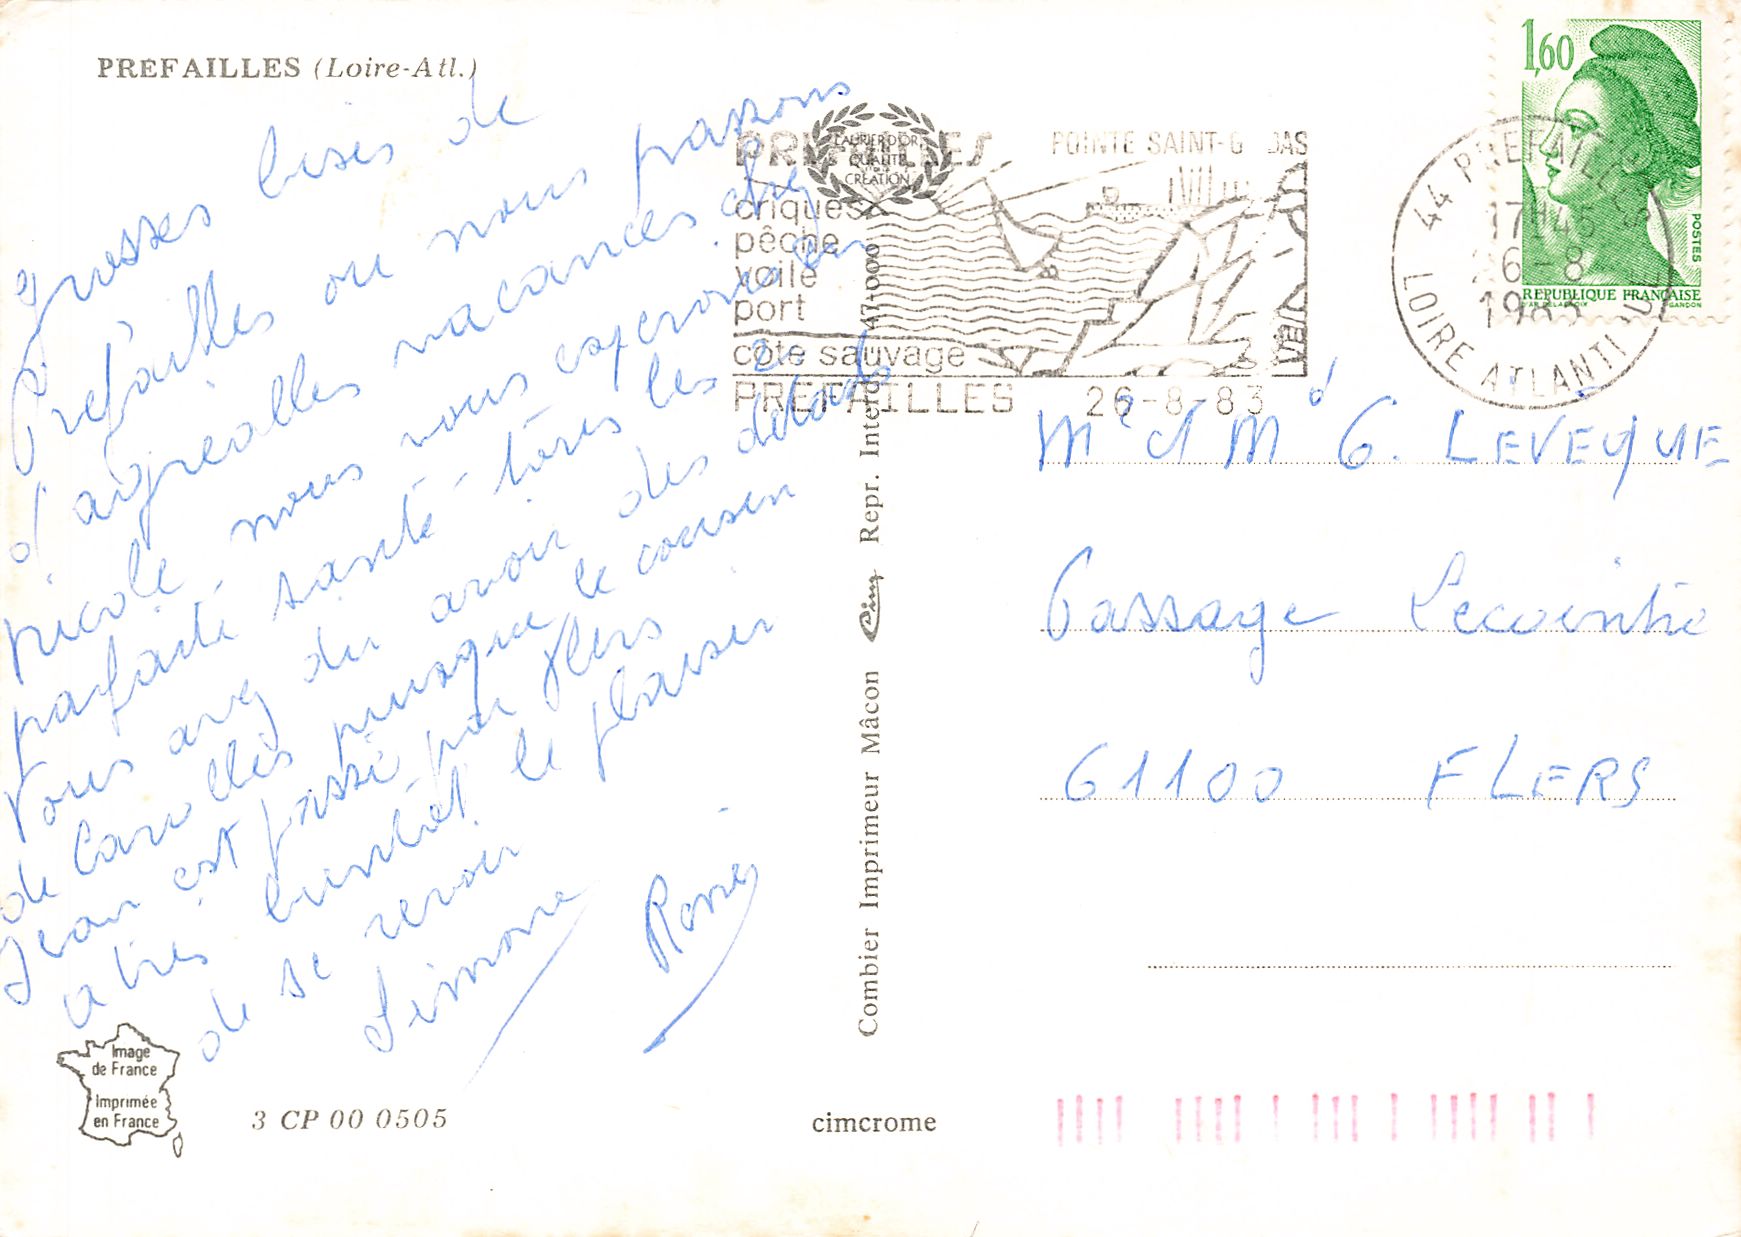 PREFAILLES (Loire-Atl.)
grosses bises de
Préfailles ou nous passons
d'agréables vacances chez
Nicole nous vous espérons en
parfaite santé tous les 2.
Vous avez du avoir des détails
de Carolles puisque le cousin
Jean est passé par Flers
a très bientôt le plaisir
de se revoir
Simone
3 CP 00 0505
Image
de France
Imprimée
en France
cimcrome
Combier Imprimeur Mâcon Cim Repr. Interd. 47-000
LAURIER D'OR
QUALITE
CREATION
PREFAILLES POINTE SAINT-G DAS
criques
pêche
voile
port
côte sauvage
PREFAILLES 26-8-83
44 PREFAILLES
17H45
26-8
1983
LOIRE ATLANTIQUE
1,60
POSTES
REPUBLIQUE FRANÇAISE
GANDON
Mr & Me G. LEVEQUE
Passage Lecointre
61100 FLERS